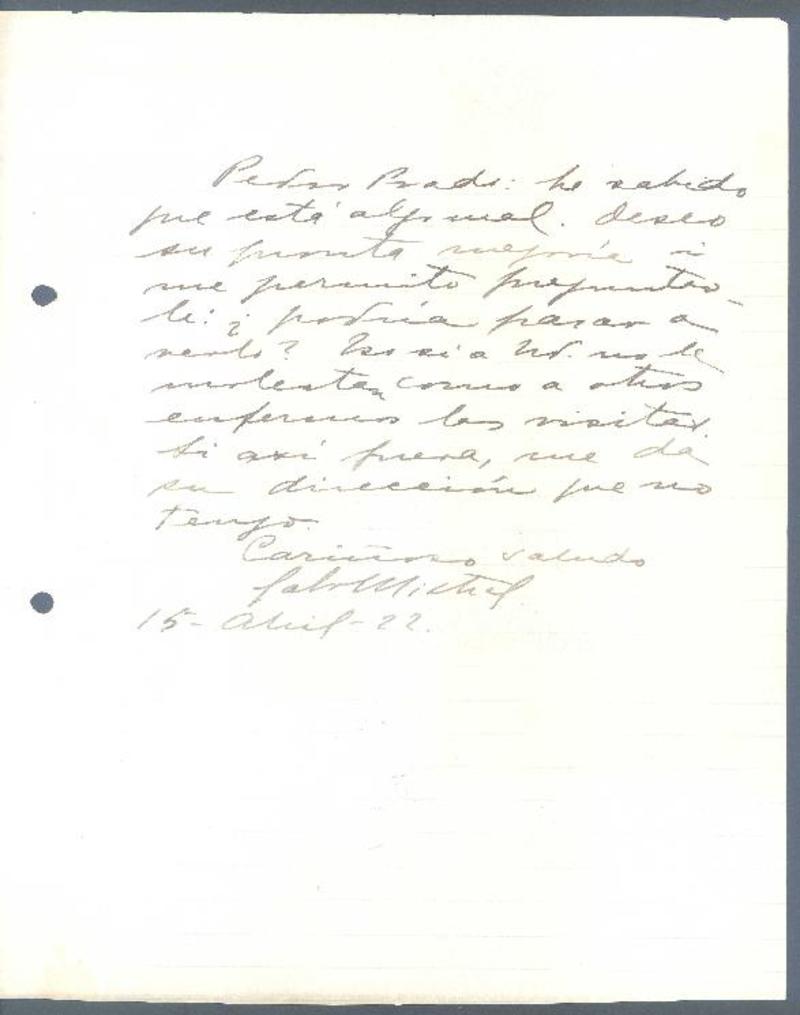 Pedro Prado: he sabido
que está algo mal. Deseo
su pronta mejoría i
me permito preguntar-
le: ¿podría pasar a
verlo? Eso si a Ud. no le
molestan como a otros
enfermos las visitas.
Si así fuera, me da
su dirección que no
tengo.
Cariñoso saludo
Gab Mistral
15 - Abril - 22.